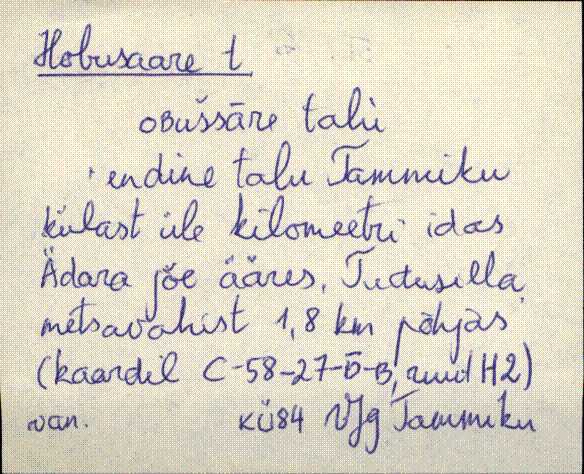 Hobusaare t
oBušsāre talù
endine talu Tammiku
külast üle kilomeetri idas
Ädara jõe ääres, Tudusilla
metsavahist 1,8 km põhjas
(kaardil C-58-27-Б-В, ruut H2)
van. KÜ84 VJg Tammiku